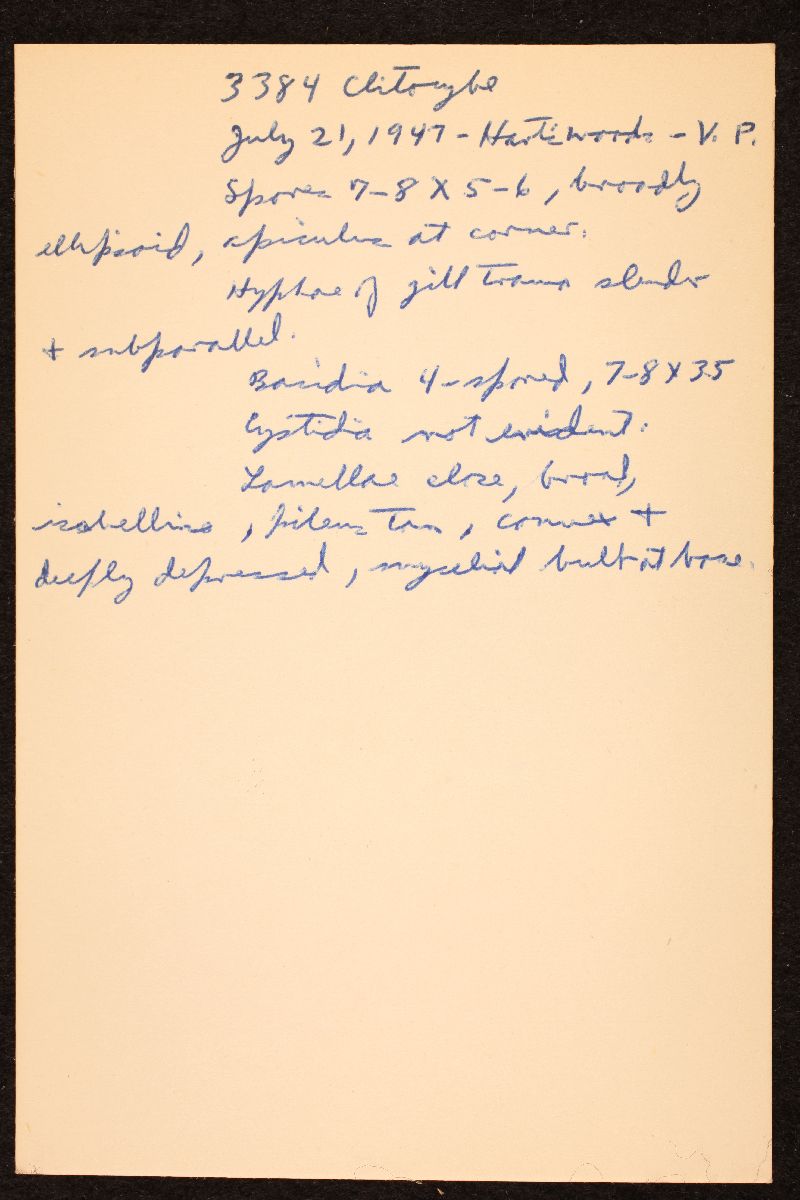 3384 Clitocybe
July 21, 1947 - Hart's woods - V. P.
Spores 7-8 X 5-6, broadly
ellipsoid, apiculus at corner.
Hyphae of gill trama slender
+ subparallel.
Basidia 4-spored, 7-8 X 35
Cystidia not evident.
Lamellae close, broad,
isabelline, pileus tan, convex +
deeply depressed, mycelial bulb at base.